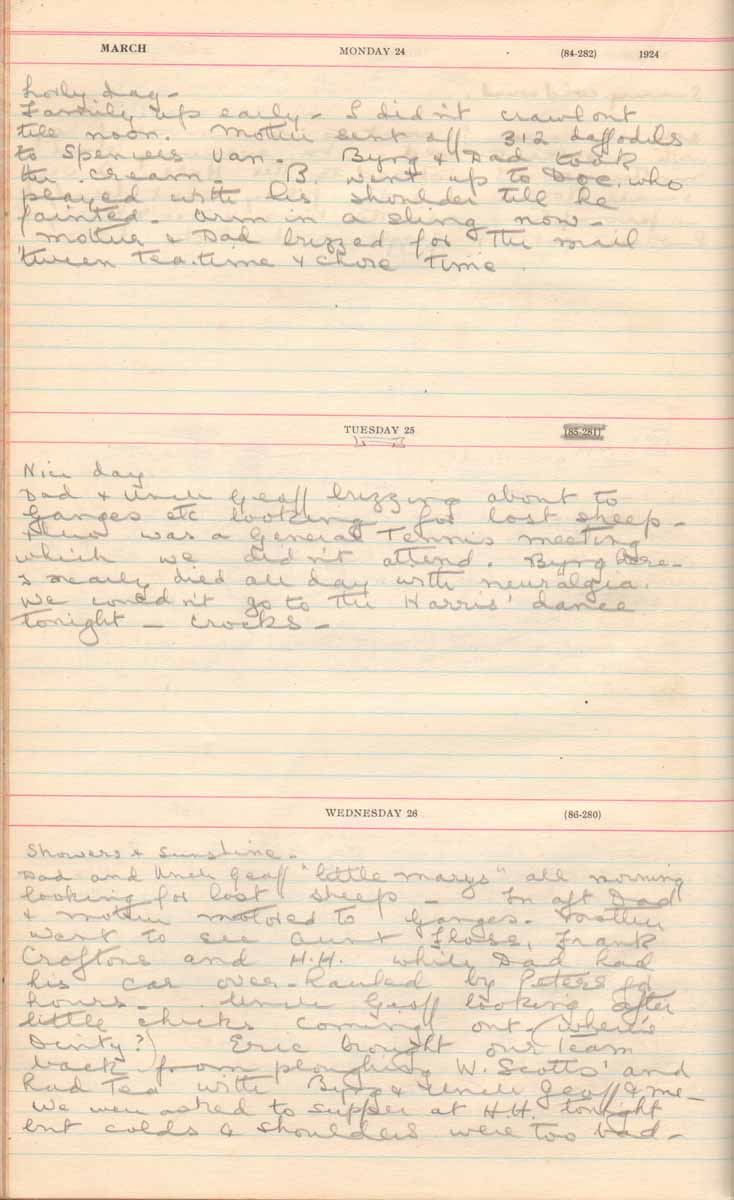 MARCH MONDAY 24 (84-282) 1924
Lovely day -
Family up early - I didn't crawl out
till noon. Mother sent off 312 daffodils
to Spencers Van. Byng & Dad took
the cream. B. went up to Doc. who
played with his shoulder till he
fainted - arm in a sling now -
Mother & Dad brizzed for the mail
'tween Tea-time & chore time.
TUESDAY 25 (85-281)
Nice day
Dad & Uncle Geoff brizzing about to
Ganges etc looking for lost sheep -
was a General Tennis meeting
which we didn't attend. Byng here -
I nearly died all day with neuralgia.
We couldn't go to the Harris' dance
tonight - crocks -
WEDNESDAY 26 (86-280)
Showers & Sunshine -
Dad and Uncle Geoff "little marys" all morning
looking for lost sheep - In aft Dad
& Mother motored to Ganges. Mother
went to see Aunt Floss, Frank
Croftons and H.H. while Dad had
his car over-hauled by Peters for
hours - Uncle Geoff looking after
little chicks coming out (where's
Dinty?) Eric brought our Team
back from ploughing W. Scotts' and
had Tea with Byng & Uncle Geoff & me -
We were asked to supper at H.H. tonight
but colds & shoulders were too bad -